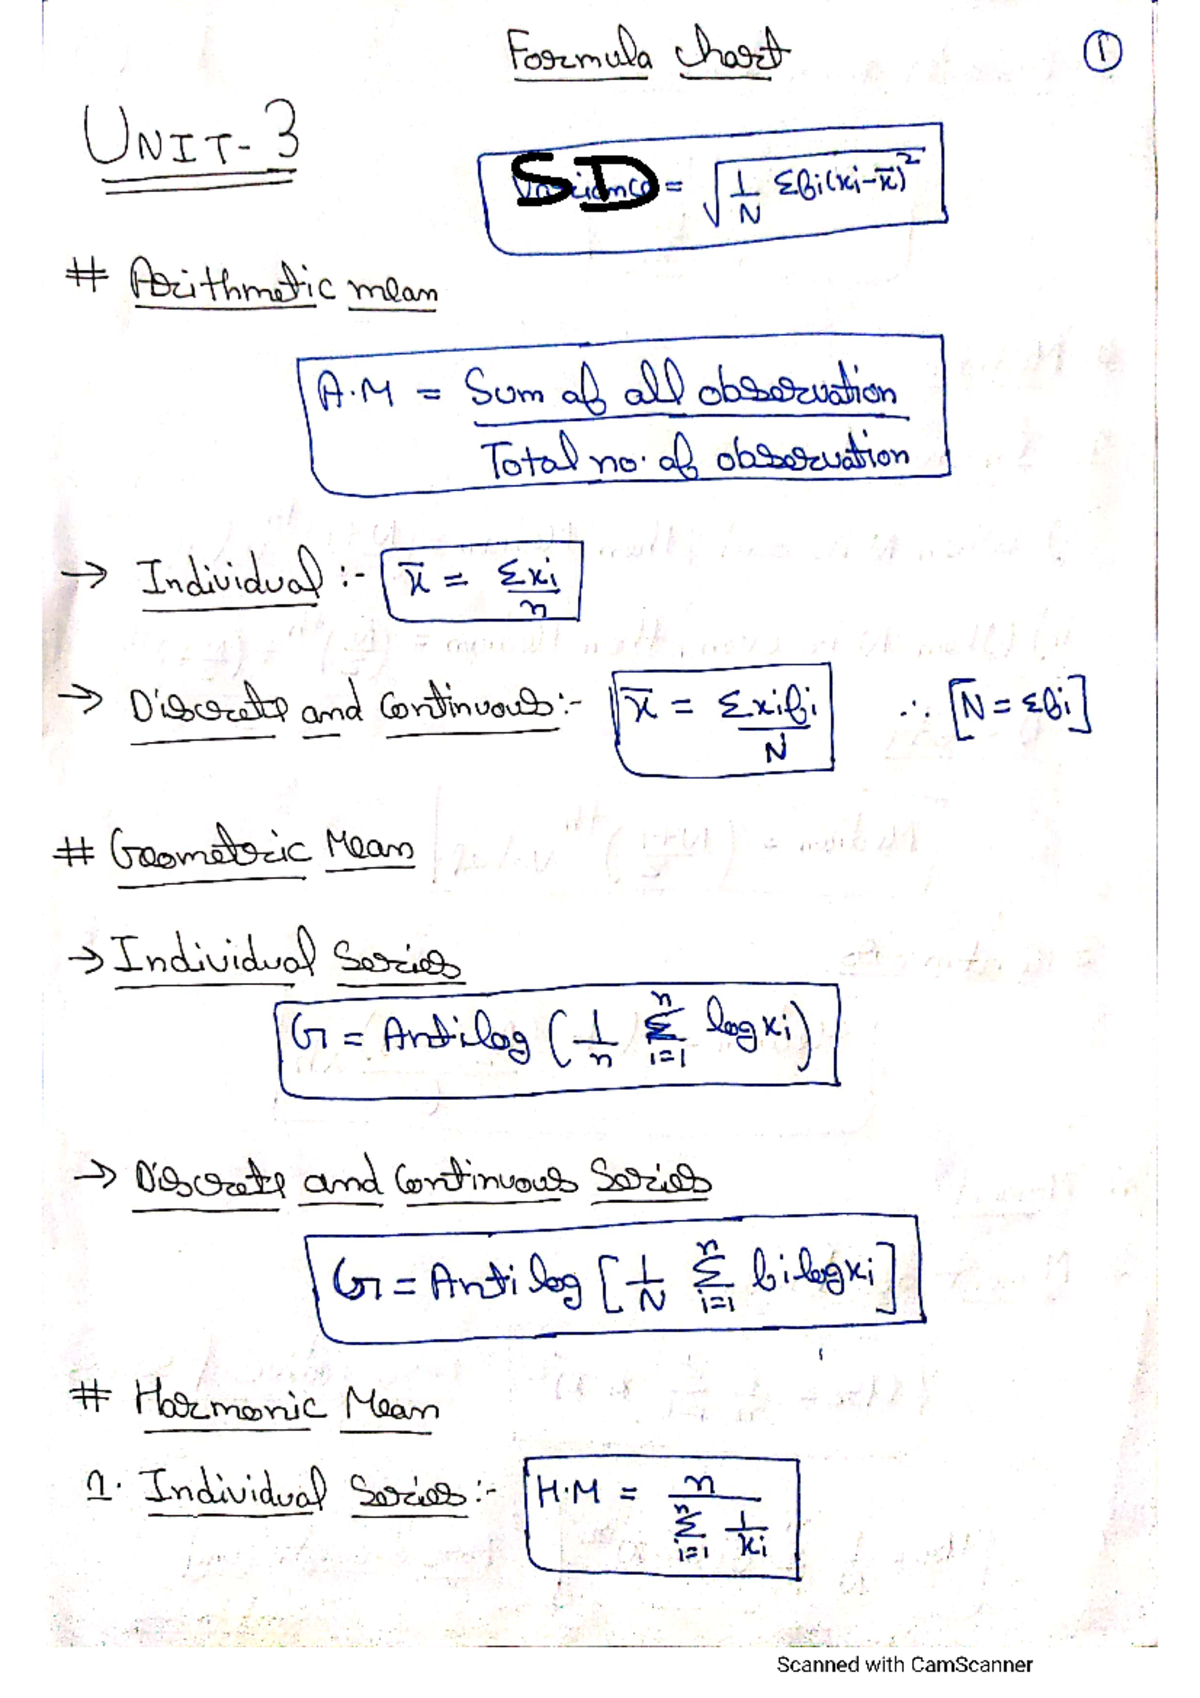 Formula chart
①
UNIT-3
SD = √(1/N Σfi(xi-x̄)²)
# Arithmetic mean
A.M = Sum of all observation / Total no. of observation
→ Individual :- x̄ = Σxi / n
→ Discrete and Continuous :- x̄ = Σxifi / N ∴ [N = Σfi]
# Geometric Mean
→ Individual Series
G = Antilog (1/n Σ_{i=1}^{n} log xi)
→ Discrete and Continuous Series
G = Antilog [1/N Σ_{i=1}^{n} fi log xi]
# Harmonic Mean
1. Individual Series :- H.M = n / Σ_{i=1}^{n} 1/xi
Scanned with CamScanner